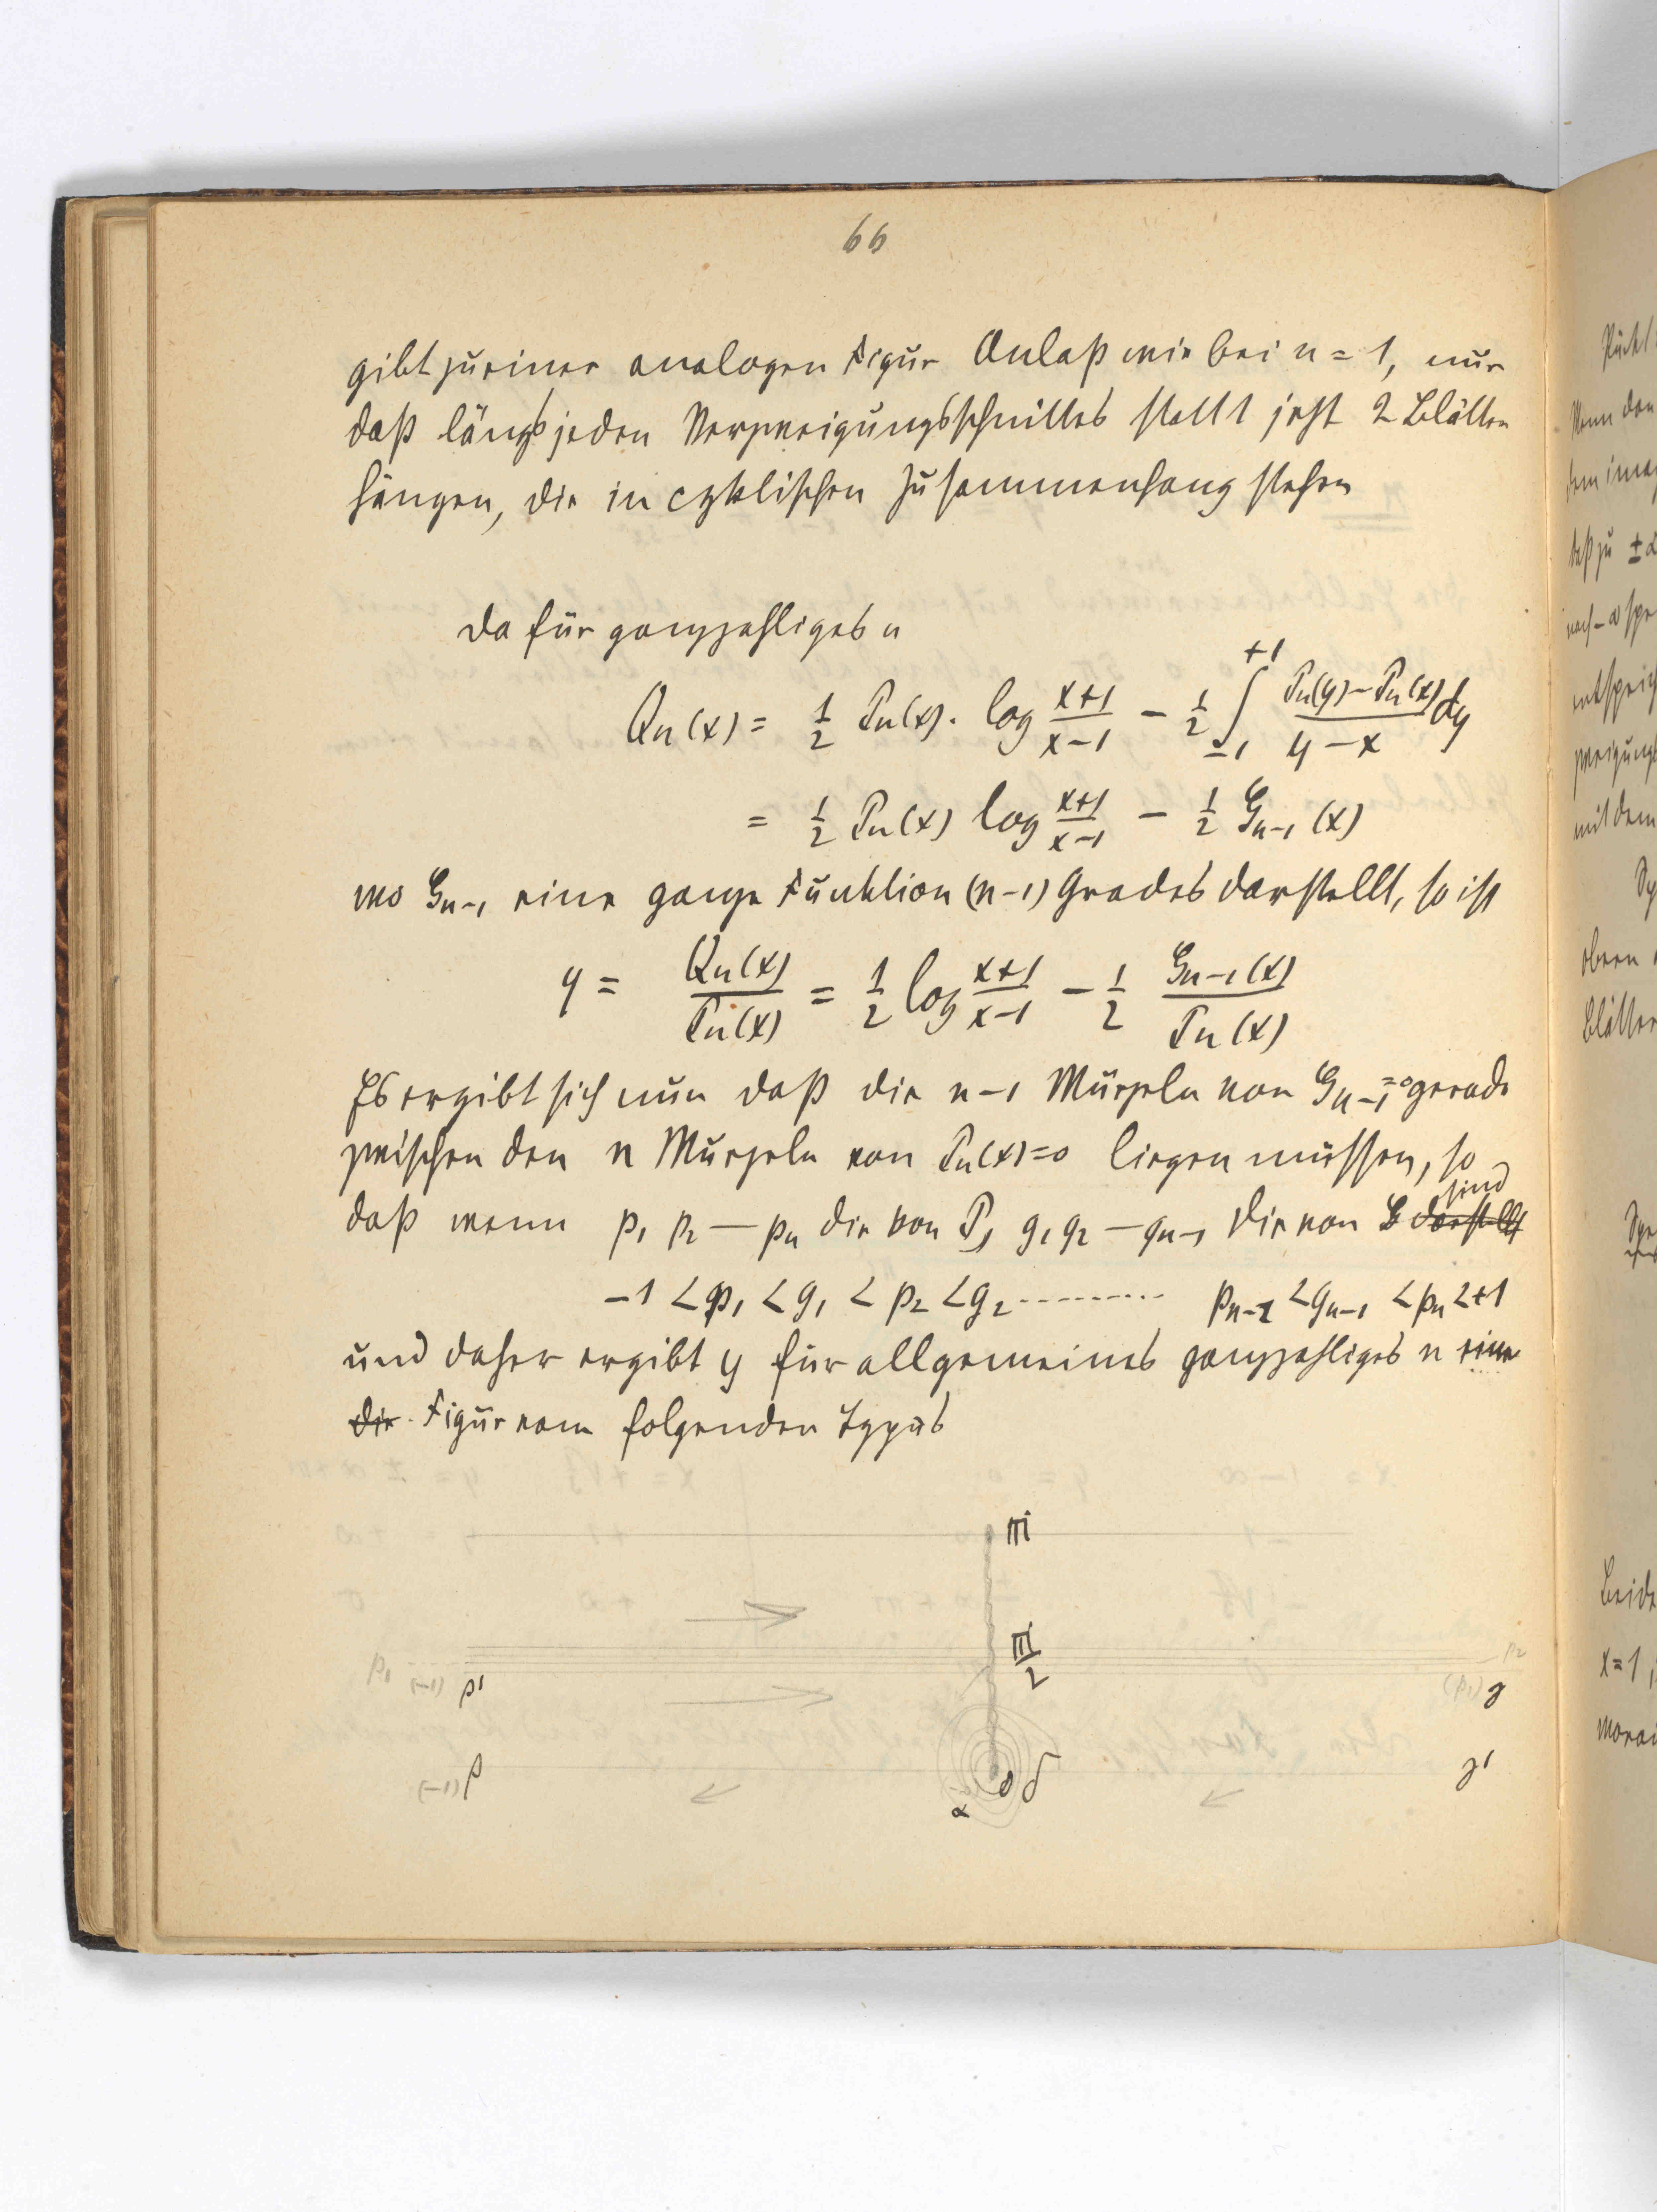 66
gibt zu einer analogen Figur Anlaß wie bei n = 1, nur
daß längs jeden Verzweigungsschnittes statt 1 jetzt 2 Blätter
hängen, die in cyklischen Zusammenhang stehen
Da für ganzzahliges n
Qn(x) = 1/2 Pn(x) · log (x+1)/(x−1) − 1/2 ∫_{−1}^{+1} (Pn(y) − Pn(x))/(y − x) dy
= 1/2 Pn(x) log (x+1)/(x−1) − 1/2 G_{n−1}(x)
wo G_{n−1} eine ganze Funktion (n−1) Grades darstellt, so ist
y = Qn(x)/Pn(x) = 1/2 log (x+1)/(x−1) − 1/2 G_{n−1}(x)/Pn(x)
Es ergibt sich nun daß die n−1 Wurzeln von G_{n−1}=0 gerade
zwischen den n Wurzeln von Pn(x)=0 liegen müssen, so
daß wenn p1 p2 — pn die von P, g1 g2 — gn−1 die von G darstellt sind
−1 < p1 < g1 < p2 < g2 ......... pn−1 < gn−1 < pn < +1
und daher ergibt y für allgemeines ganzzahliges n eine
die Figur vom folgenden Typus
πi
πi/2
p1 (−1) β' p2
(p1) γ
(−1) β 0 δ γ'
α